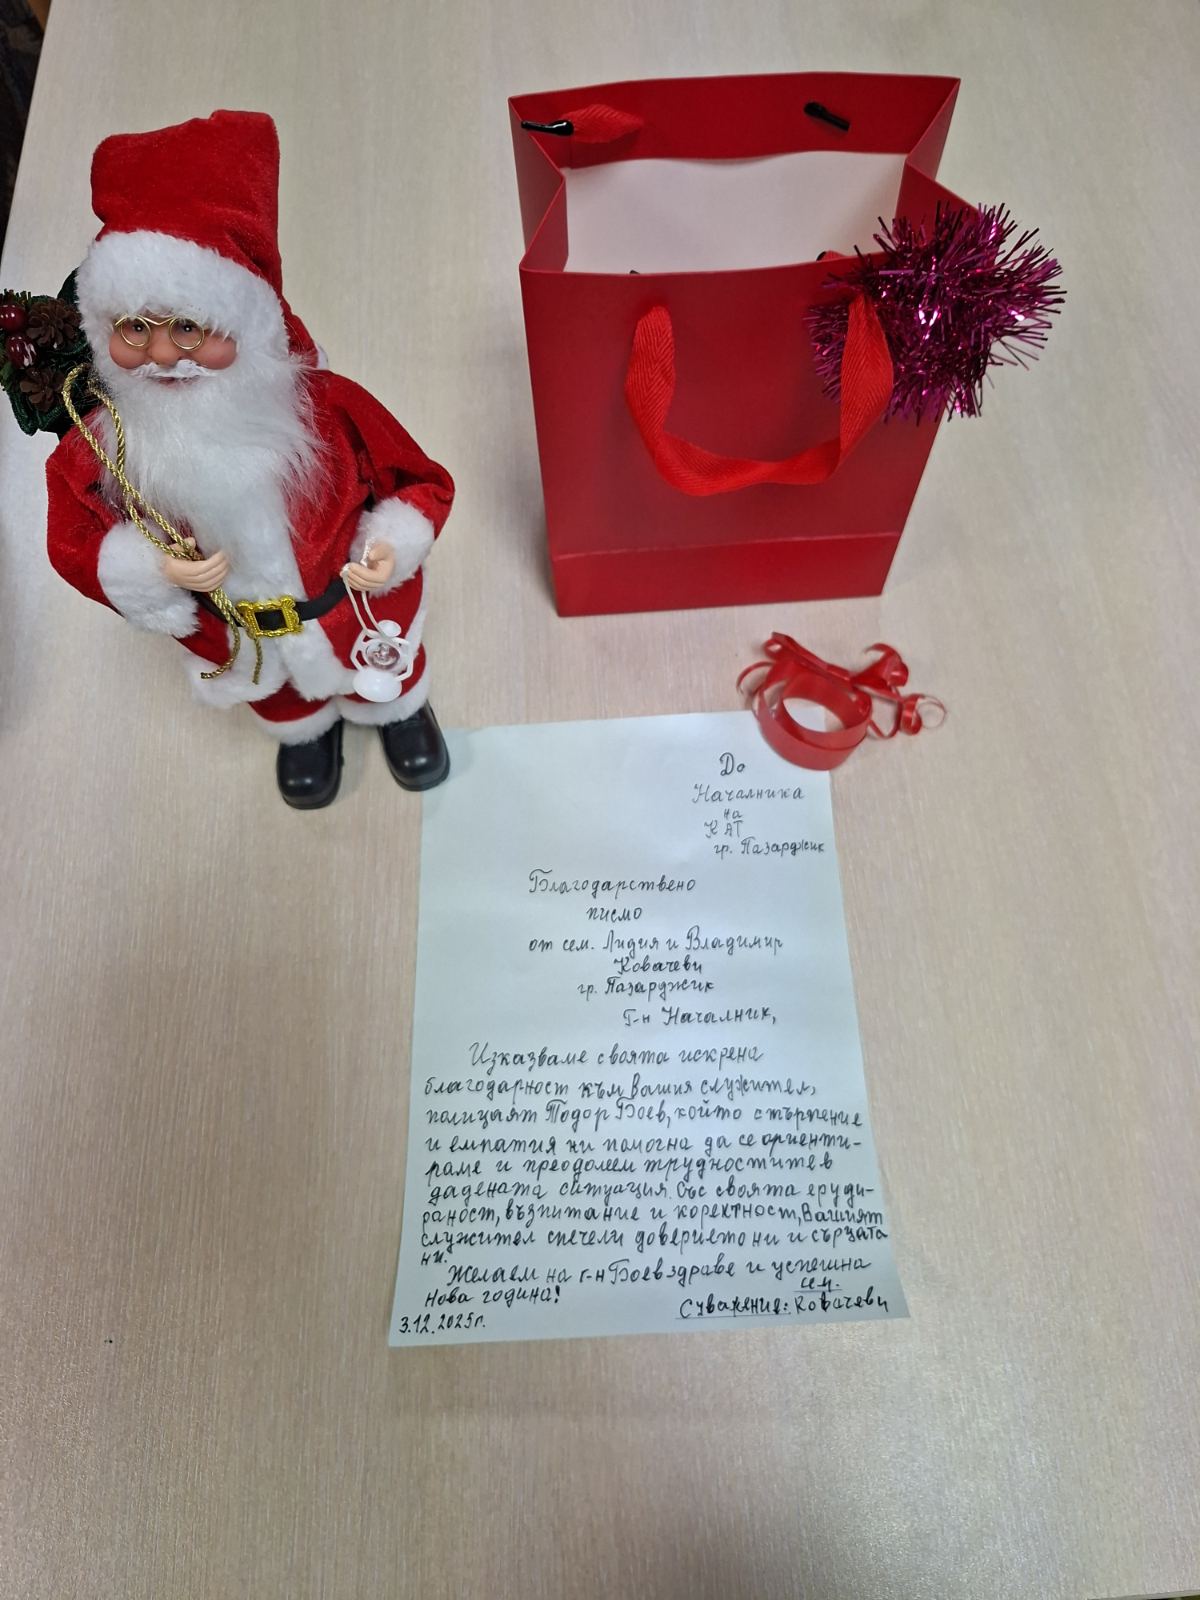 До
Началника
на
КАТ
гр. Пазарджик
Благодарствено
писмо
от сем. Лидия и Владимир
Ковачеви
гр. Пазарджик
Г-н Началник,
Изказваме своята искрена
благодарност към Вашия служител,
полицаят Тодор Боев, който с търпение
и емпатия ни помогна да се ориенти-
раме и преодолем трудностите в
дадената ситуация. Със своята еруди-
раност, възпитание и коректност, Вашият
служител спечели доверието ни и сърцата
ни.
Желаем на г-н Боев здраве и успешна
Нова година!
сем.
3.12.2025г. С уважение: Ковачеви